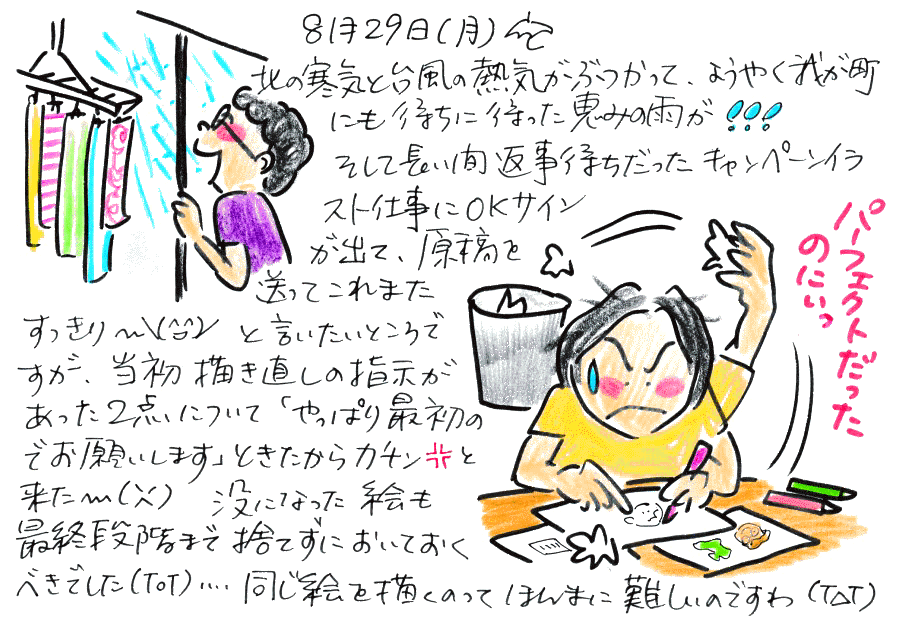 8月29日(月)
北の寒気と台風の熱気がぶつかって、ようやく我が町
にも待ちに待った恵みの雨が!!!
そして長い間返事待ちだったキャンペーンイラ
スト仕事にOKサイン
が出て、原稿を
送ってこれまた
すっきり〜\(^^)/ と言いたいところで
すが、当初描き直しの指示が
あった2点について「やっぱり最初の
でお願いします」ときたからカチンと
来た〜(ˋˊ) 没になった絵も
最終段階まで捨てずにおいておく
べきでした(ToT)‥‥同じ絵を描くのってほんまに難しいのですわ(T△T)
パーフェクトだった
のにぃっ